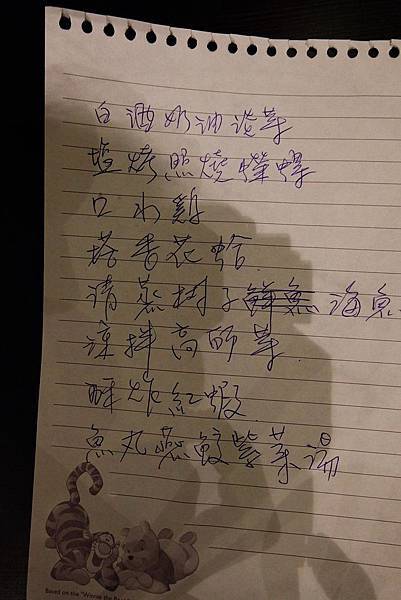 白酒奶油淡菜
塩烤照燒蠑螺
口水雞
塔香花蛤
清蒸樹子鮮魚 海魚
涼拌高師菜
酥炸紅蝦
魚丸燕餃紫菜湯
Based on the "Winnie the